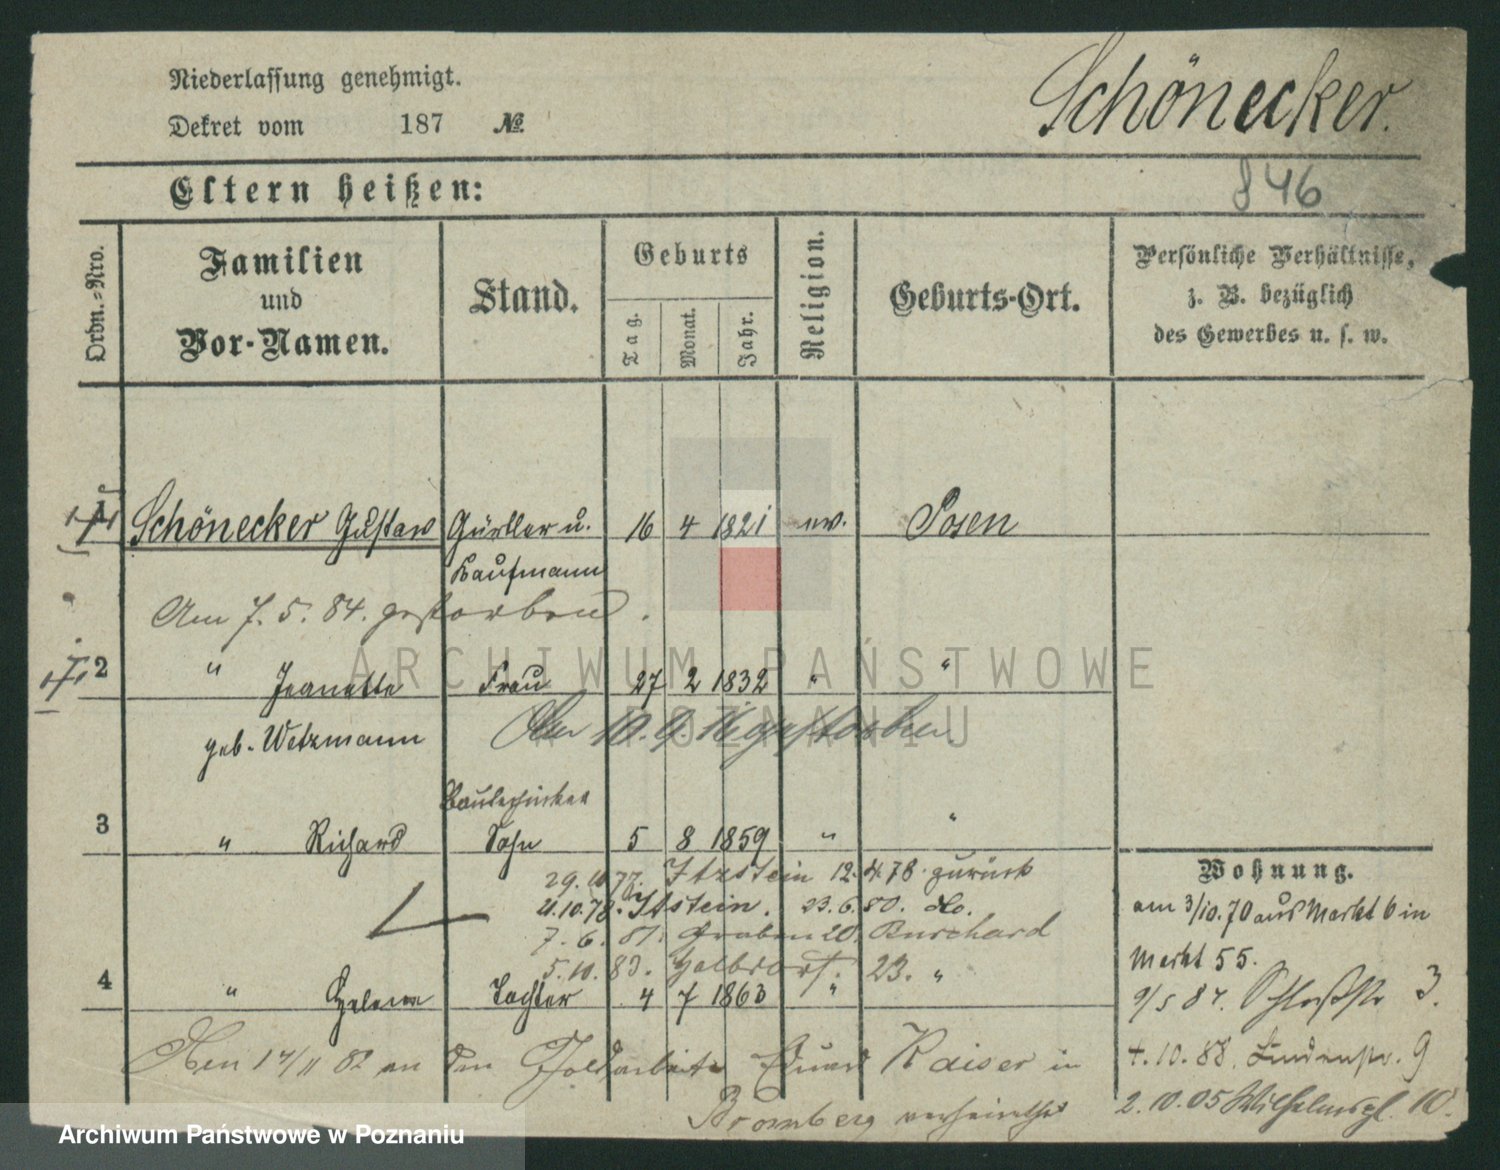 Niederlassung genehmigt.
Schönecker.
Dekret vom 187 №
Eltern heißen:
846
Ordn.=Nro.
Familien
und
Vor-Namen.
Stand.
Geburts
Tag.
Monat.
Jahr.
Religion.
Geburts-Ort.
Persönliche Verhältnisse,
z. B. bezüglich
des Gewerbes u. s. w.
1 Schönecker Gustav Gürtler u. 16 4 1821 ev. Posen
Kaufmann
Am 7. 5. 84. gestorben.
2 " Jeanette Frau 27 2 1832 " "
geb. Wetzmann
Am 10. 9. gestorben.
3 " Richard Sohn 5 8 1859 " "
29. 10 77. Itzstein 12. 4. 78. zurück
21.10.78. Itstein. 23. 6. 80. do.
7. 6. 81. Graben 20. Burchard
5. 10. 83. 23. "
4 " Helene Tochter 4 7 1863 "
Den 17/11 82 an den Goldarbeiter Eduard Kaiser in
Bromberg verheirathet
Wohnung.
am 3/10.70 aus Markt 6 in
Markt 55.
9/5 87. Schloßstr 3.
4. 10. 88. Lindenstr. 9
2. 10. 05 Wilhelmspl. 10.
ARCHIWUM PAŃSTWOWE
W POZNANIU
Archiwum Państwowe w Poznaniu